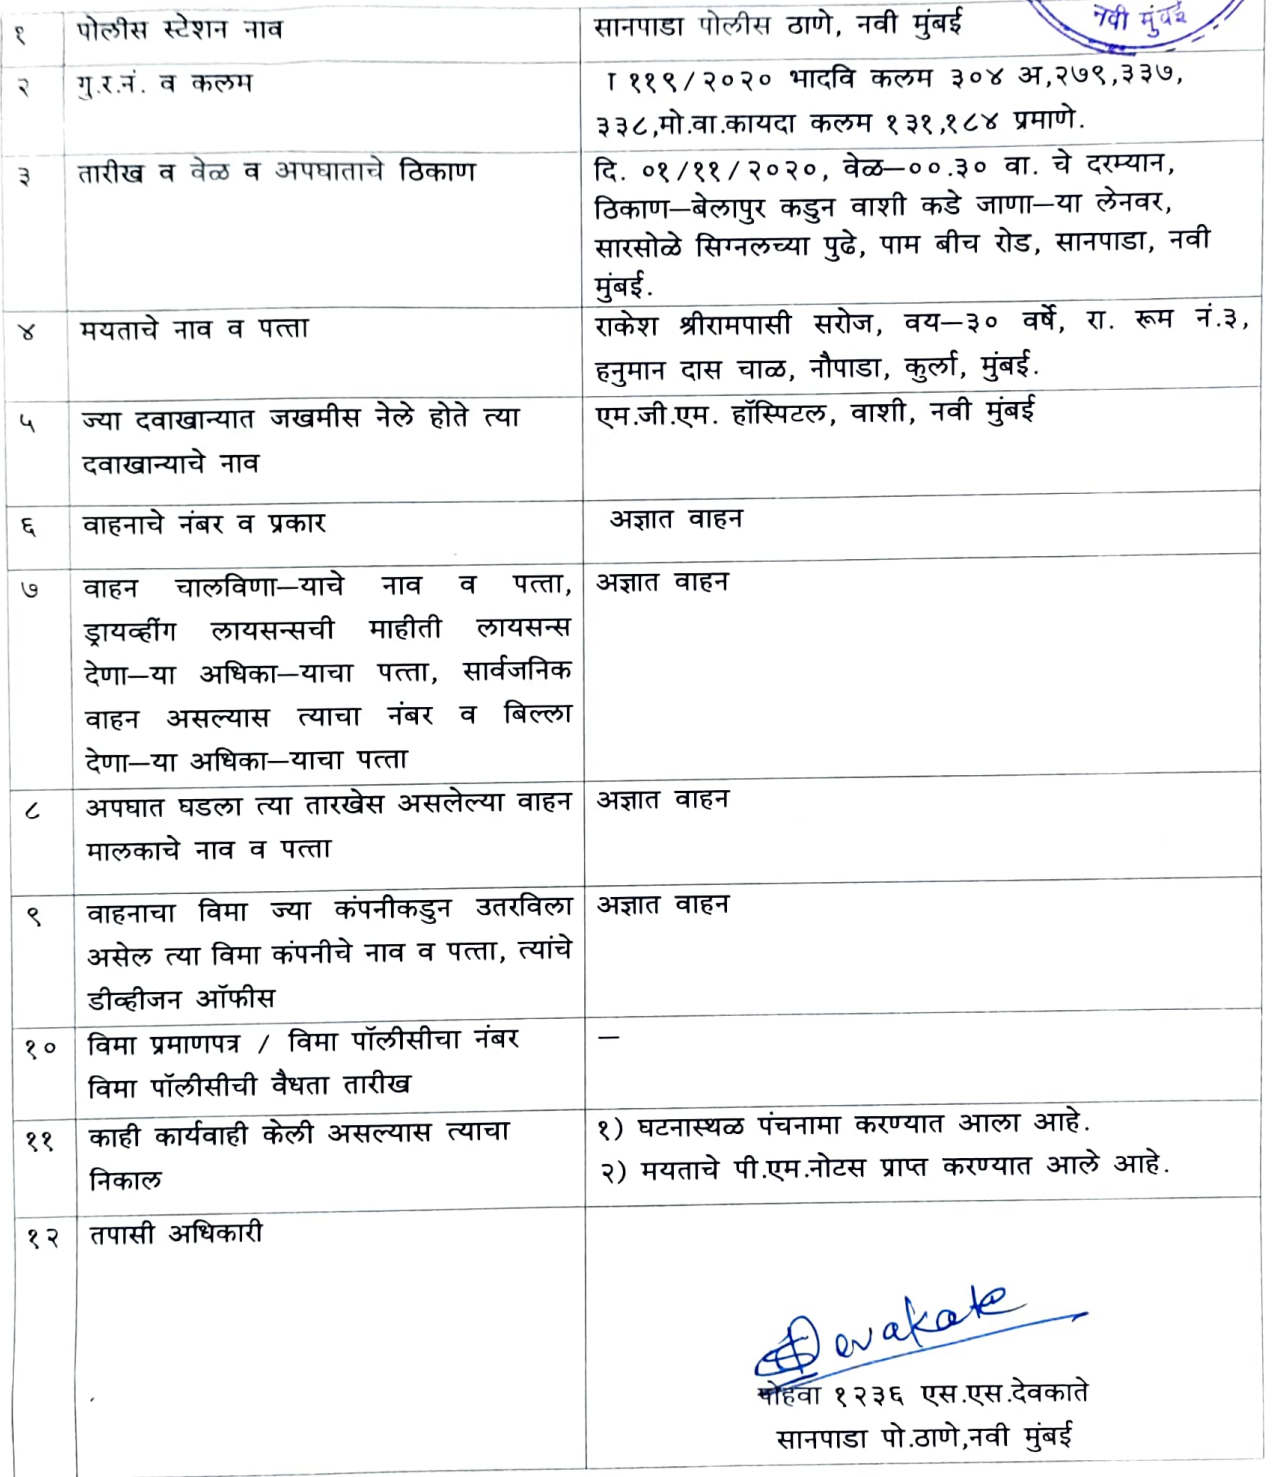 नवी मुंबई
१ पोलीस स्टेशन नाव सानपाडा पोलीस ठाणे, नवी मुंबई
२ गु.र.नं. व कलम I ११९/२०२० भादवि कलम ३०४ अ,२७९,३३७,
३३८,मो.वा.कायदा कलम १३१,१८४ प्रमाणे.
३ तारीख व वेळ व अपघाताचे ठिकाण दि. ०१/११/२०२०, वेळ—००.३० वा. चे दरम्यान,
ठिकाण—बेलापुर कडुन वाशी कडे जाणा—या लेनवर,
सारसोळे सिग्नलच्या पुढे, पाम बीच रोड, सानपाडा, नवी
मुंबई.
४ मयताचे नाव व पत्ता राकेश श्रीरामपासी सरोज, वय—३० वर्षे, रा. रूम नं.३,
हनुमान दास चाळ, नौपाडा, कुर्ला, मुंबई.
५ ज्या दवाखान्यात जखमीस नेले होते त्या एम.जी.एम. हॉस्पिटल, वाशी, नवी मुंबई
दवाखान्याचे नाव
६ वाहनाचे नंबर व प्रकार अज्ञात वाहन
७ वाहन चालविणा—याचे नाव व पत्ता, अज्ञात वाहन
ड्रायव्हींग लायसन्सची माहीती लायसन्स
देणा—या अधिका—याचा पत्ता, सार्वजनिक
वाहन असल्यास त्याचा नंबर व बिल्ला
देणा—या अधिका—याचा पत्ता
८ अपघात घडला त्या तारखेस असलेल्या वाहन अज्ञात वाहन
मालकाचे नाव व पत्ता
९ वाहनाचा विमा ज्या कंपनीकडुन उतरविला अज्ञात वाहन
असेल त्या विमा कंपनीचे नाव व पत्ता, त्यांचे
डीव्हीजन ऑफीस
१० विमा प्रमाणपत्र / विमा पॉलीसीचा नंबर —
विमा पॉलीसीची वैधता तारीख
११ काही कार्यवाही केली असल्यास त्याचा १) घटनास्थळ पंचनामा करण्यात आला आहे.
निकाल २) मयताचे पी.एम.नोटस प्राप्त करण्यात आले आहे.
१२ तपासी अधिकारी
Devakate
पोहवा १२३६ एस.एस.देवकाते
सानपाडा पो.ठाणे,नवी मुंबई